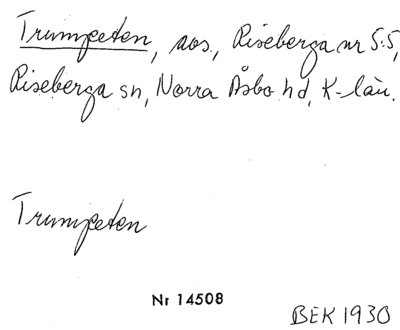 Trumpeten, sos., Riseberga nr 5:5,
Riseberga sn, Norra Åsbo hd, K-län.
Trumpeten
Nr 14508
BEK 1930